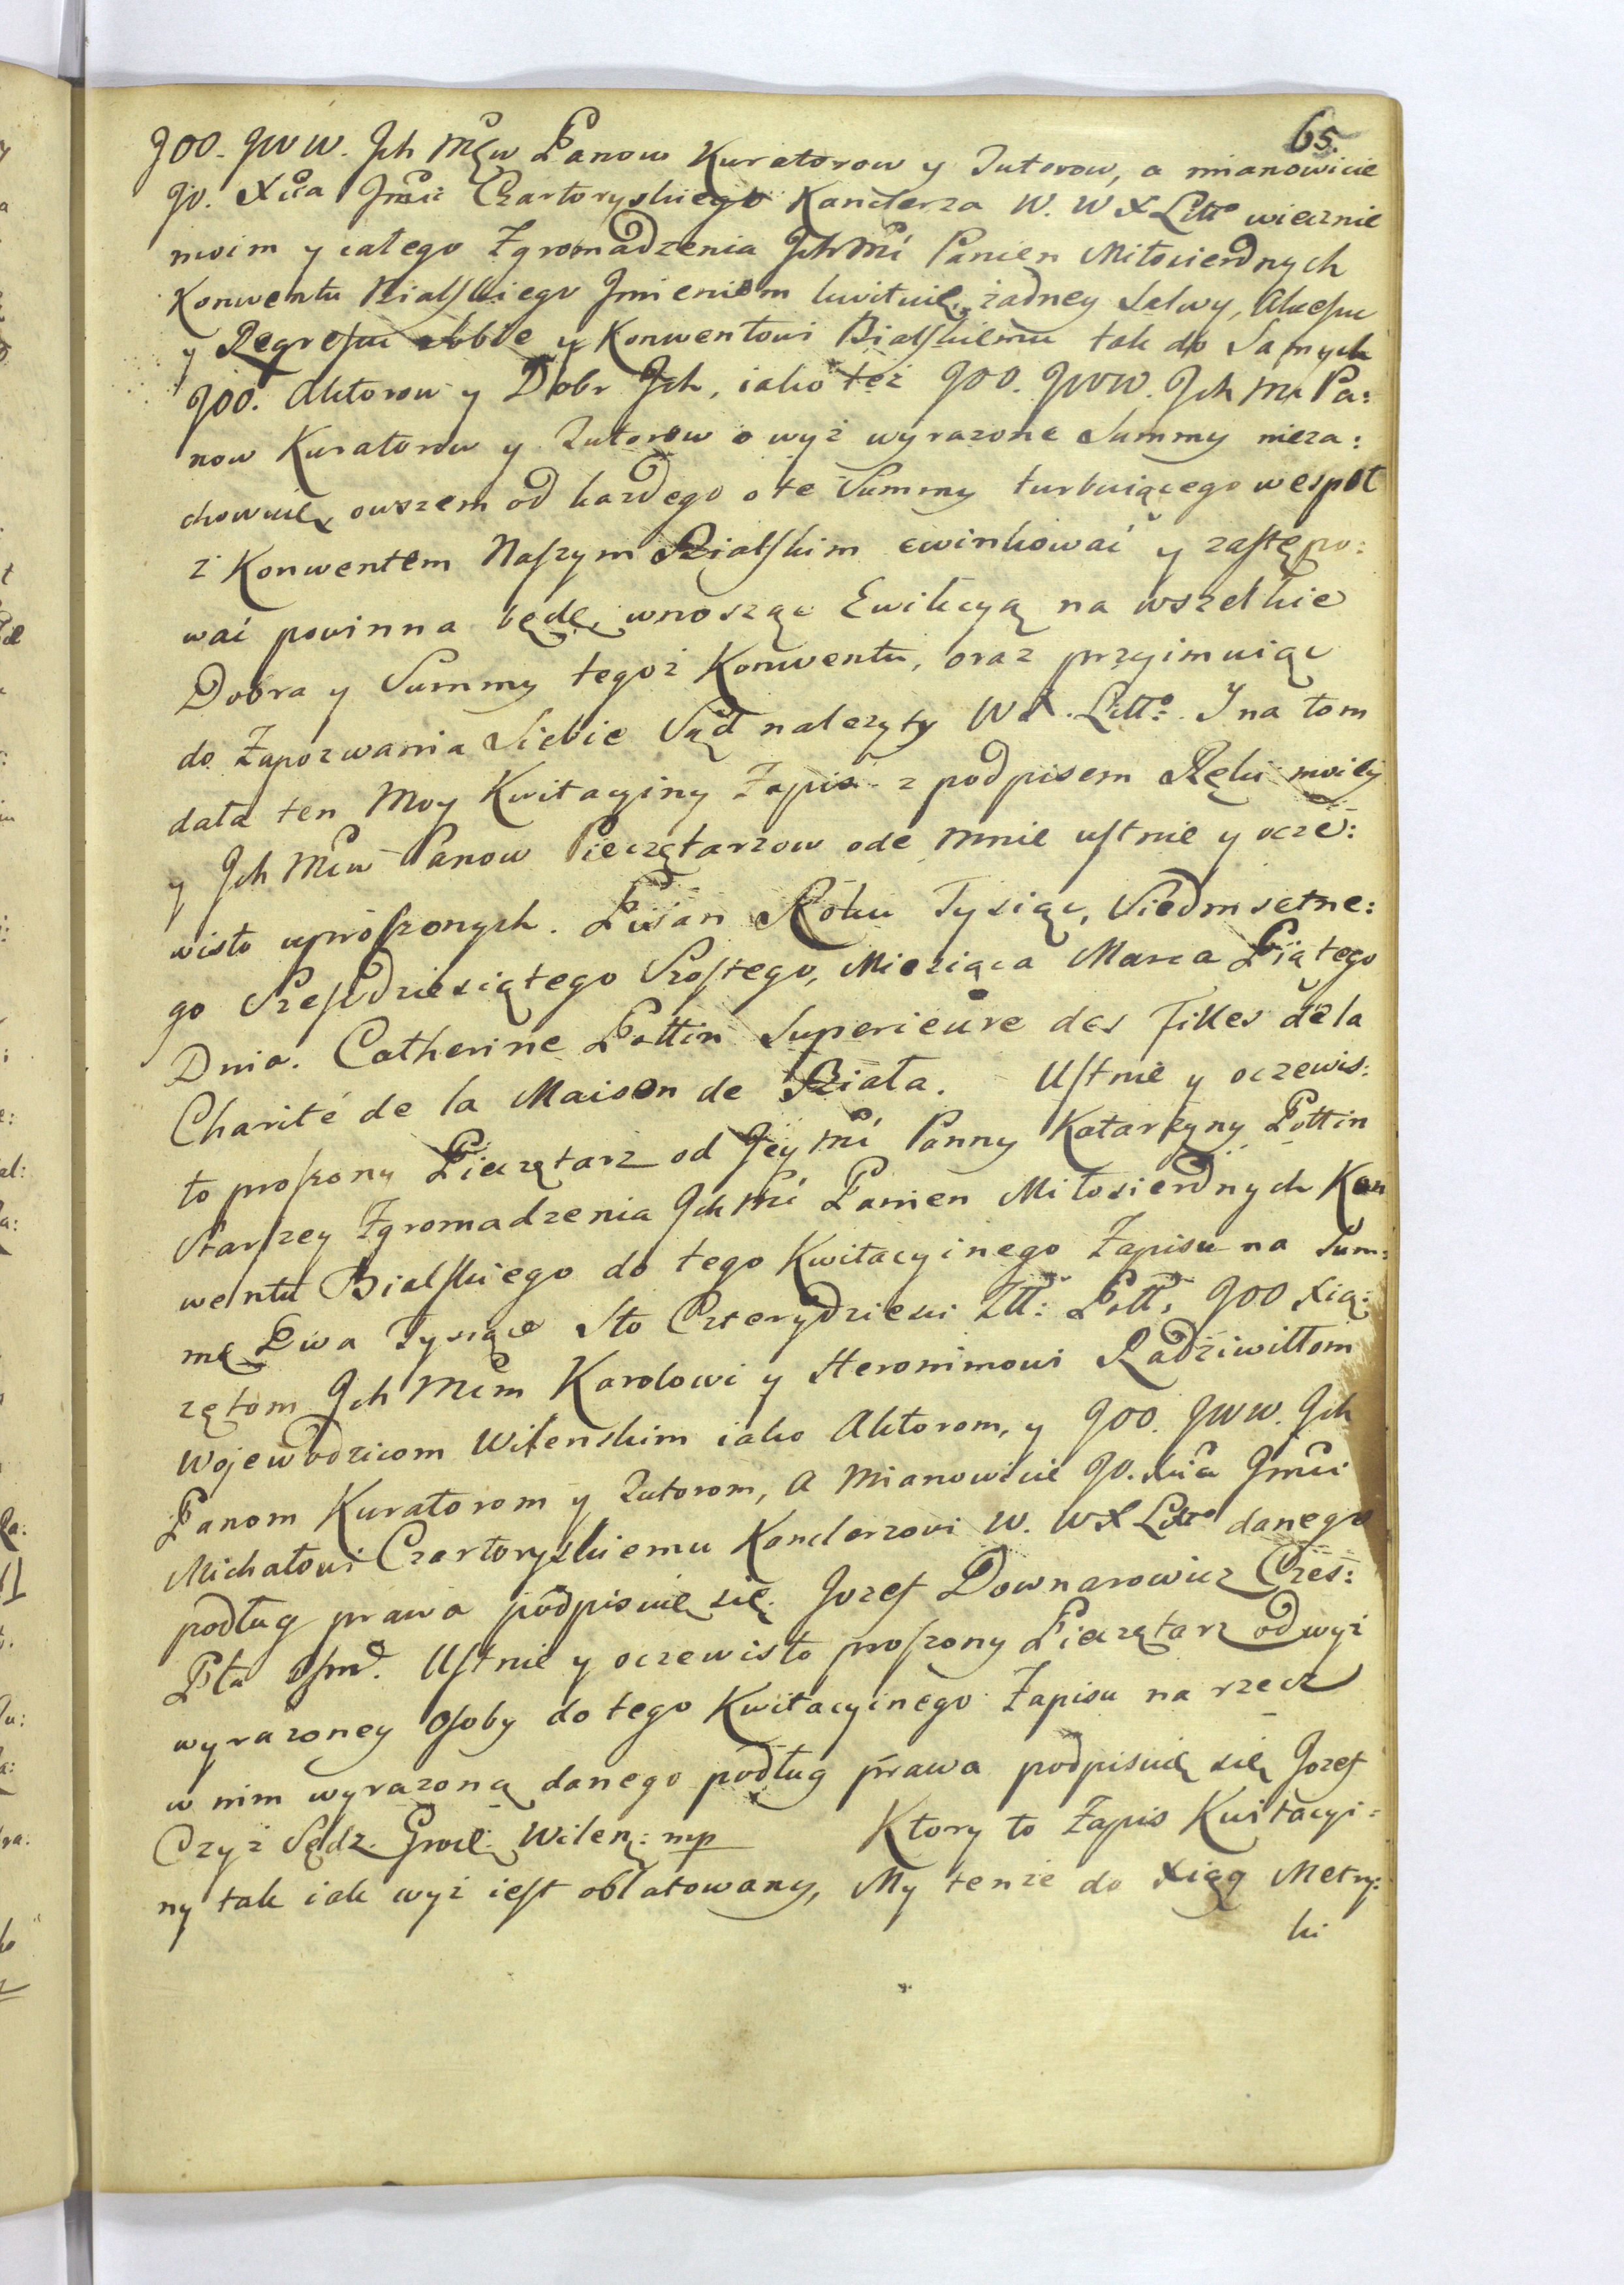 65.
JOO. JWW. Ich Mćw Panow Kuratorow y Tutorow, a mianowicie
JO. Xcia Jmci Czartoryskiego Kanclerza W. W X Litto wiecznie
moim y całego Zgromadzenia IchMci Panien Miłosierdnych
Konwentu Bialſkiego Jmieniem kwituię, żadney Salwy, Akceſsu
y Regreſsu sobie y Konwentowi Bialſkiemu tak do Samych
JOO. Aktorow y Dobr Ich, iako też JOO. JWW. Ich Mć Pa:
now Kuratorow y Tutorow o wyż wyrazone Summy nieza:
chowuię, owszem od kazdego o te Summy turbuiącego wespoł
z Konwentem Naſzym Bialſkim ewinkować y zaſtępo:
wać powinna będę, wnosząc Ewikcyą na wszelkie
Dobra y Summy tegoż Konwentu, oraz przyimuiąc
do Zapozwania Siebie Sąd nalezyty W X. Litto: I na tom
dała ten Moy Kwitacyiny Zapis z podpisem Ręki moiey
y Ich Mćw Panow Pieczętarzow ode mnie uſtnie y ocze:
wisto uproſzonych. Pisan Roku Tysiąc, Siedmsetne:
go Szeſćdziesiątego Szoſtego, Miesiąca Marca Piątego
Dnia. Catherine Pottin Superieure des Filles de la
Charité de la Maison de Biała. Uſtnie y oczewis:
to proſzony Pieczętarz od Jey Mći Panny Katarzyny Pottin
Starſzey Zgromadzenia Ich Mći Panien Miłosierdnych Kon
wentu Bialſkiego do tego Kwitacyinego Zapisu na Sum:
mę Dwa Tysiące Sto Czterydzieści Złł: Poll: JOO Xią:
zętom Ich Mćm Karolowi y Heronimowi Radziwiłłom
Wojewodzicom Wilenskim iako Aktorom, y JOO. JWW. Ich
Panom Kuratorom y Tutorom, a Mianowicie JO. Xcia Jmci
Michałowi Czartoryſkiemu Kanclerzowi W. W X Litto danego
podług prawa podpisuię się. Jozef Downarowicz Czes:
Pta Oſm. Uſtnie y oczewisto proſzony Pieczętarz od wyż
wyrazoney Oſoby do tego Kwitacyinego Zapisu na rzecz
w nim wyrazoną danego podług prawa podpisuię się Jozef
Czyż Sędz. Grod: Wilen: mp Ktory to Zapis Kwitacyi:
ny tak iak wyż ieſt oblatowany, My tenże do Xiąg Metry:
ki